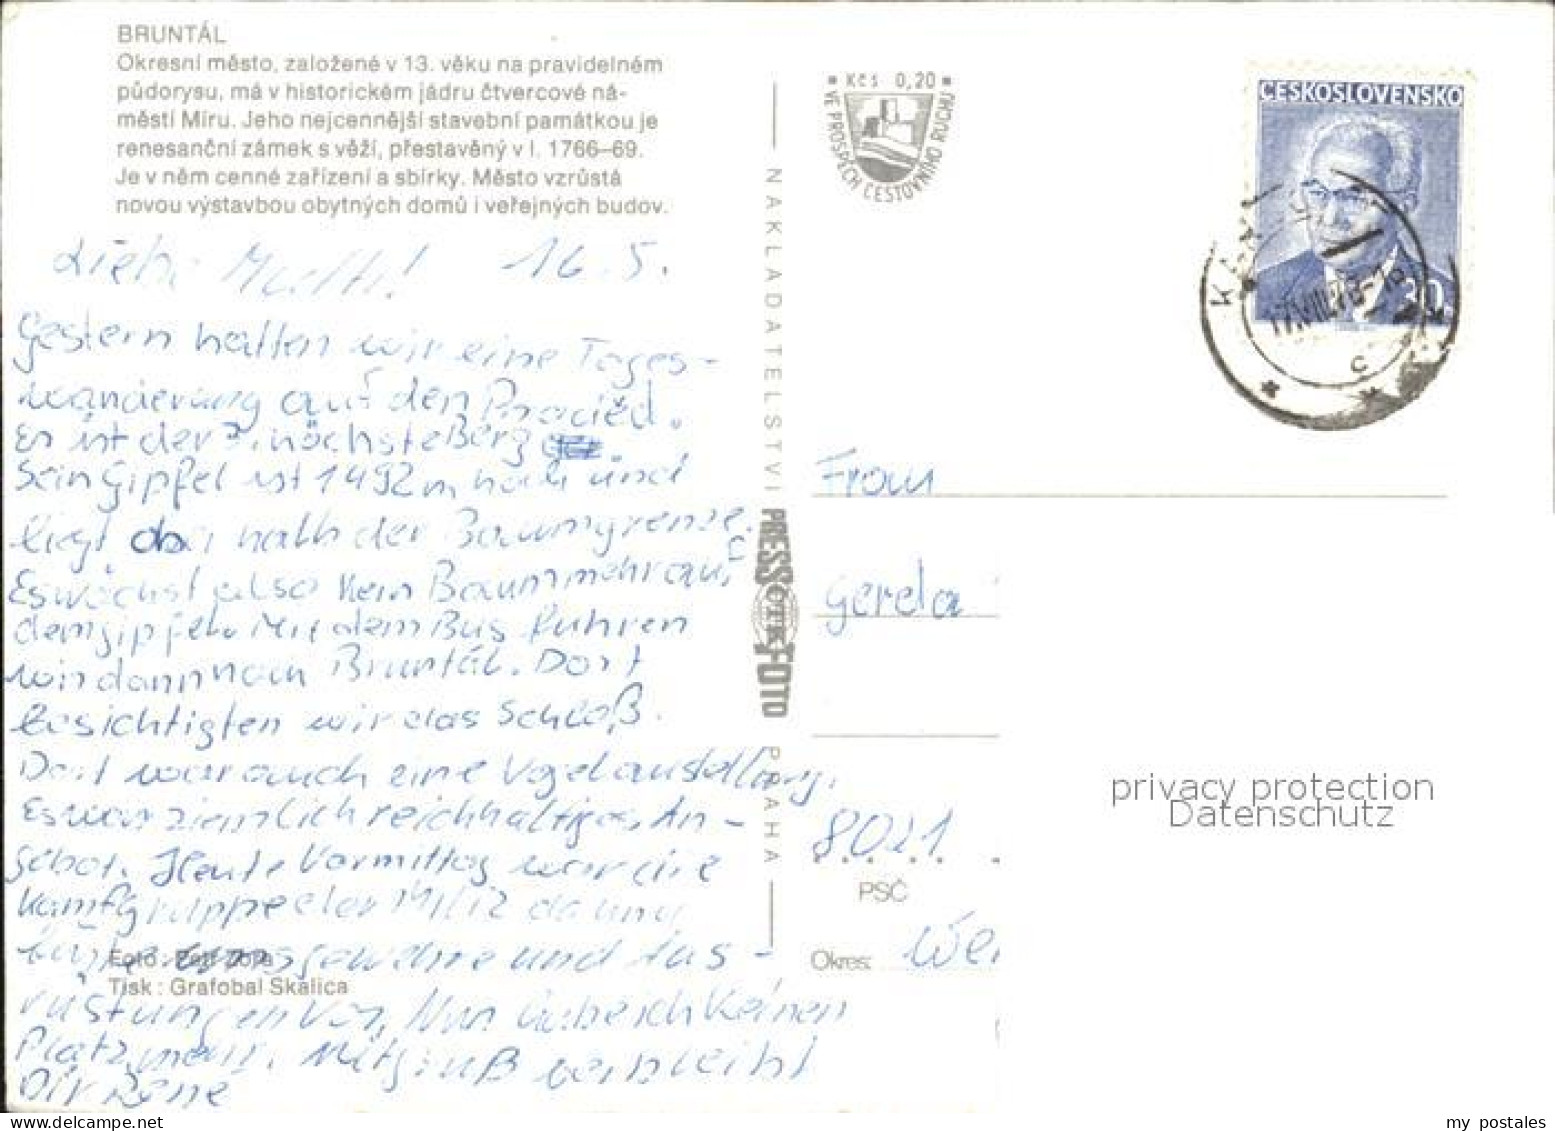 BRUNTÁL
Okresní město, založené v 13. věku na pravidelném
půdorysu, má v historickém jádru čtvercové ná-
městí Míru. Jeho nejcennější stavební památkou je
renesanční zámek s věží, přestavěný v l. 1766–69.
Je v něm cenné zařízení a sbírky. Město vzrůstá
novou výstavbou obytných domů i veřejných budov.
Liebe Mutti! 16.5.
Gestern hatten wir eine Tages-
wanderung auf den Praděd.
Er ist der höchste Berg
Sein Gipfel ist 1492m hoch und
liegt oberhalb der Baumgrenze.
Es wächst also kein Baum mehr auf
dem Gipfel. Mit dem Bus fuhren
wir dann nach Bruntál. Dort
besichtigten wir das Schloß.
Dort war auch eine Vogelausstellung.
Es war ziemlich reichhaltiges An-
gebot. Heute Vormittag war die
Kampfgruppe der Miliz da und
und Aus-
rüstungen vor. Nun habe ich keinen
Platz mehr. Mit Gruß verbleibt
Dir Rene
Foto: Petr Zora
Tisk: Grafobal Skalica
NAKLADATELSTVÍ PRESSFOTO PRAHA
ČTK
Kčs 0,20
VE PROSPĚCH CESTOVNÍHO RUCHU
ČESKOSLOVENSKO
30h
17.VIII.78-18
C
Frau
Gerda
8021
PSČ
Okres:
privacy protection
Datenschutz
my postales